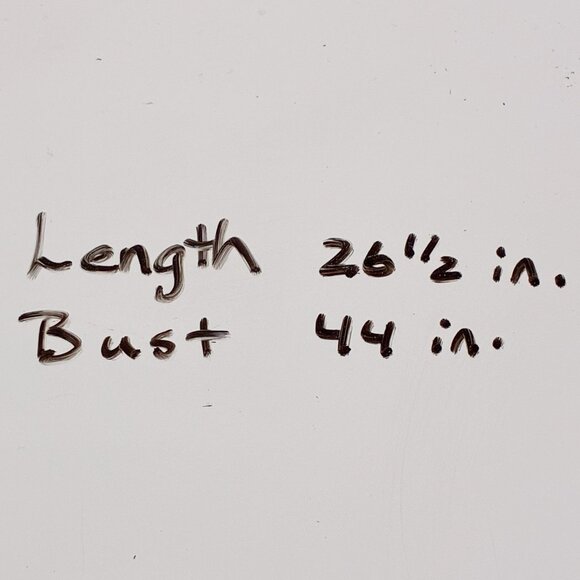 Length 26 1/2 in.
Bust 44 in.